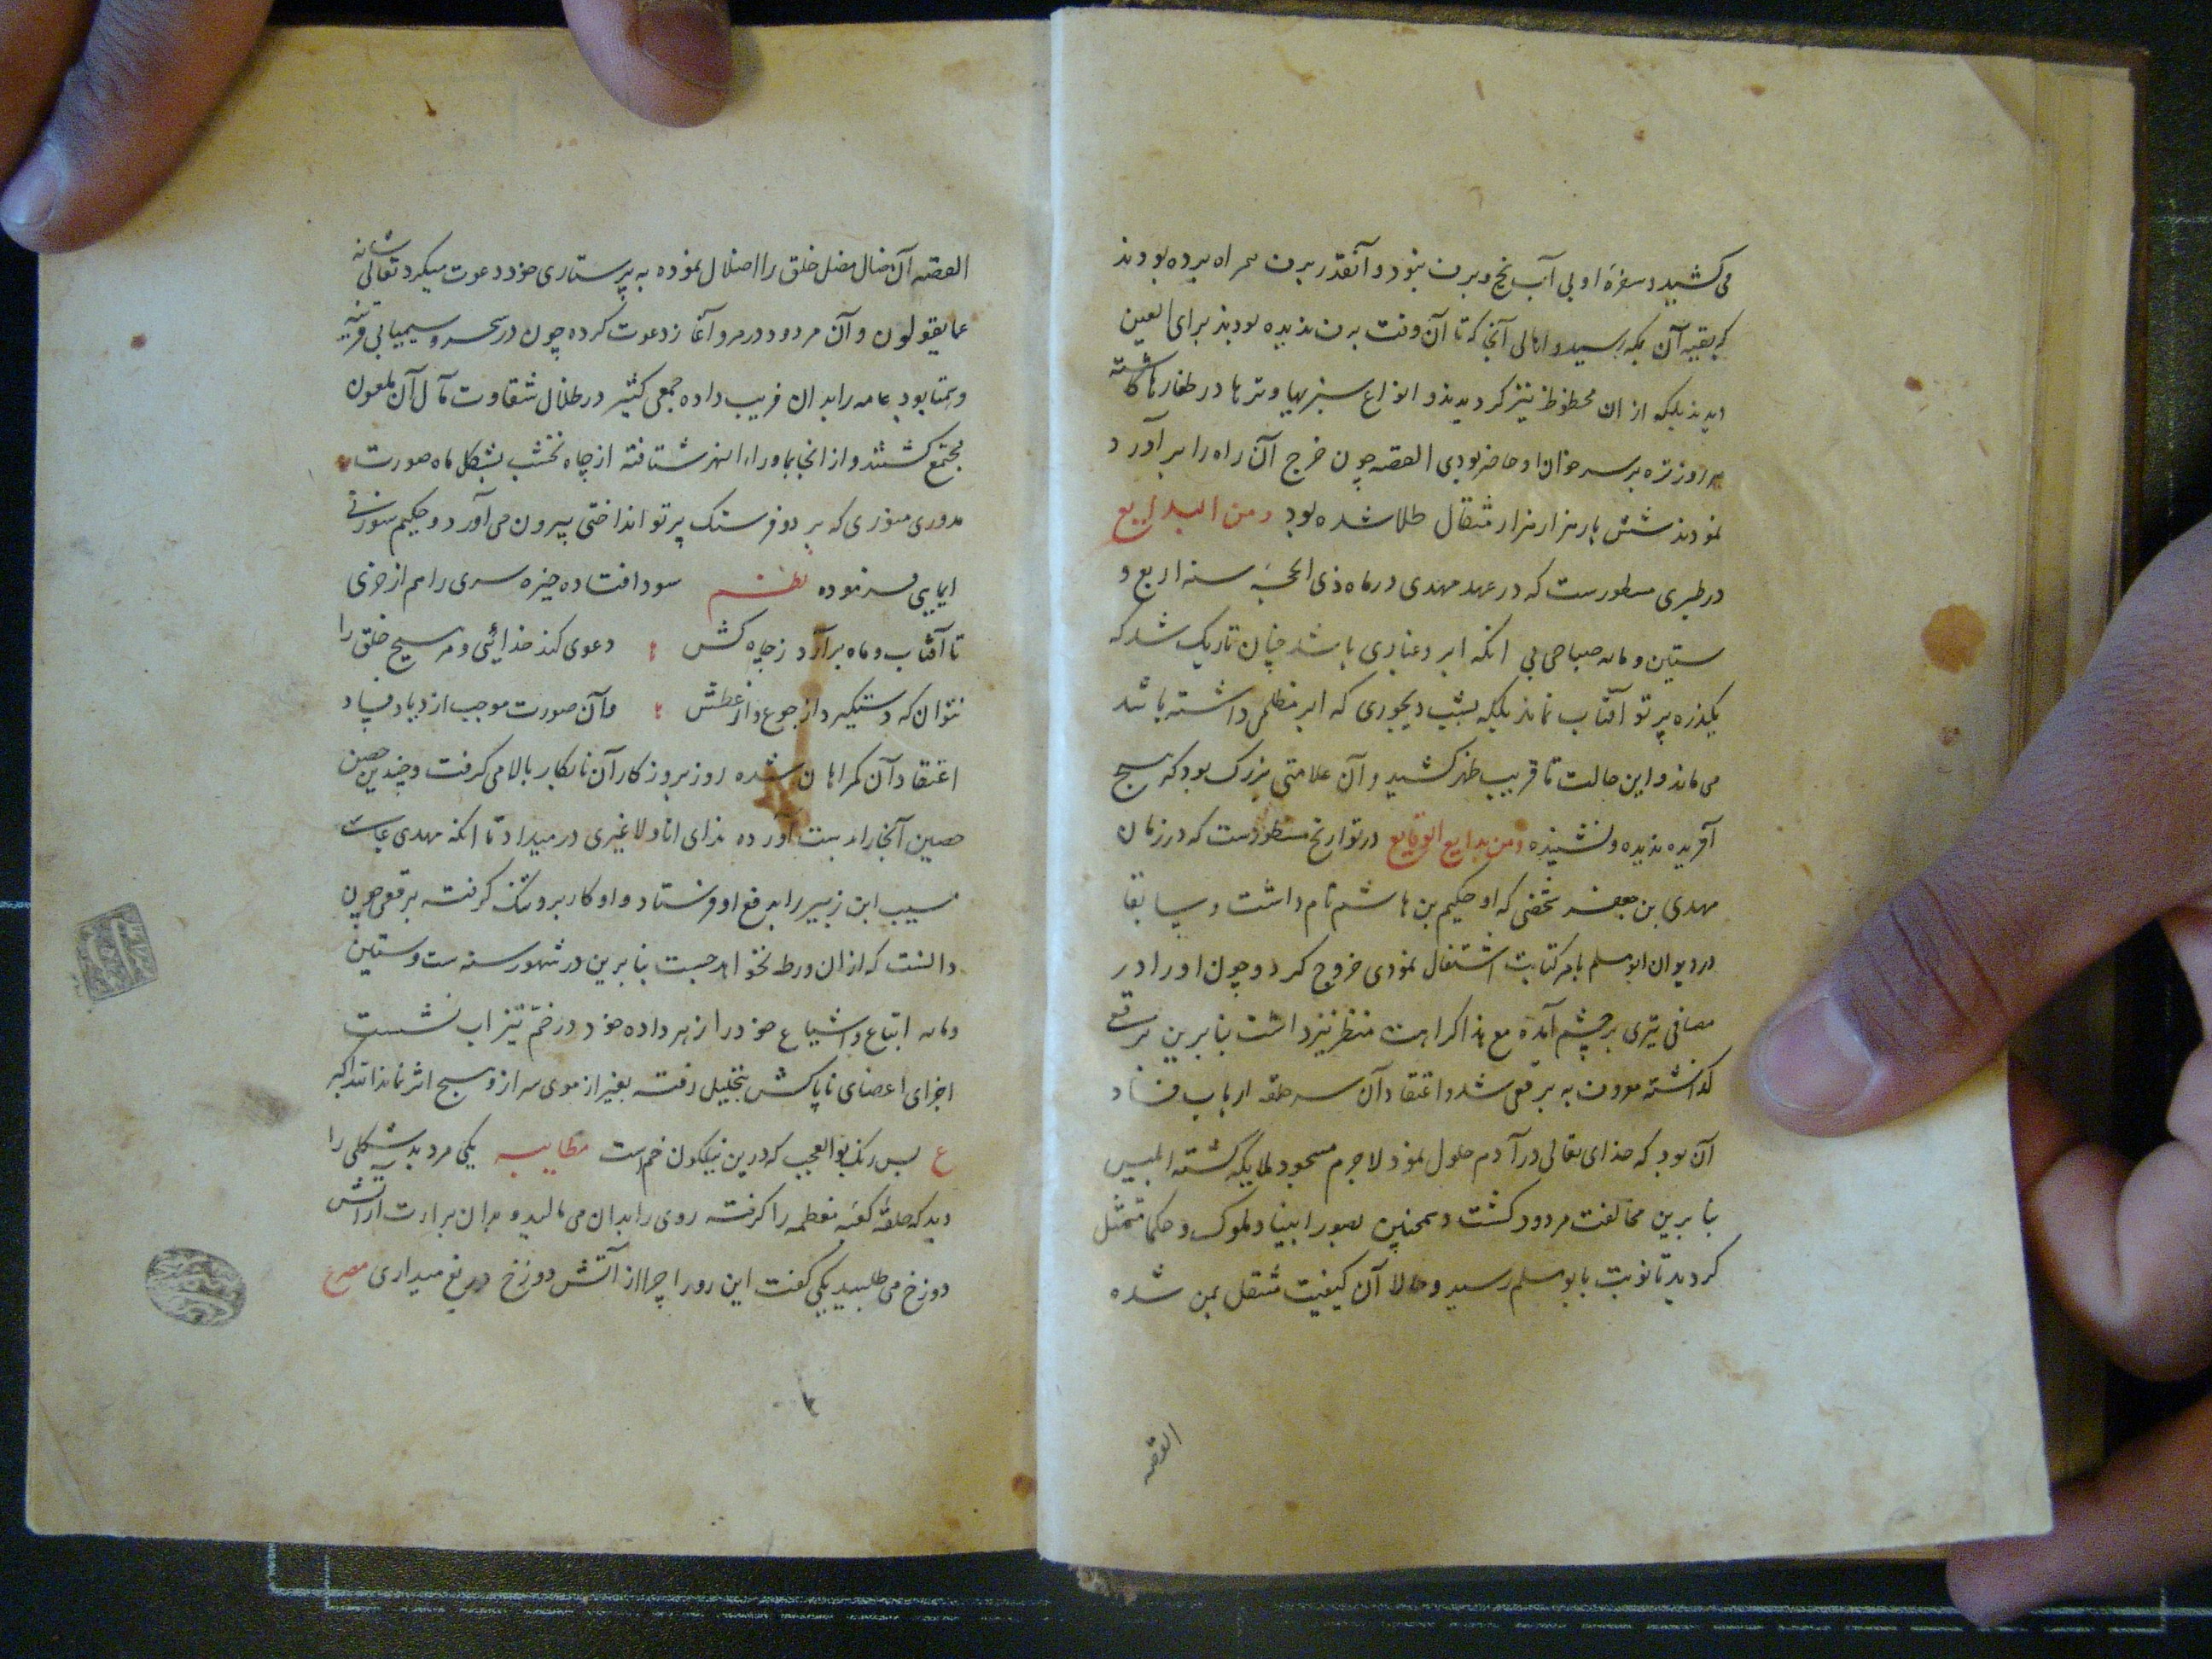 می کشید و سفرهٔ او بی آب یخ و برف نبود و آنقدر برف همراه برده بودند
که بقیه آن بمکه رسید و اهالی آنجا که تا آن وقت برف ندیده بودند برای العین
دیدند بلکه از ان محظوظ نیز کردیدند و انواع سبزیها و تره ها در طغارها کاشته
هر روز تره بر سر خوان او حاضر بودی القصه چون خرج آن راه را برآورد
نمودند شش بار هزار هزار مثقال طلا شده بود ومن البدایع
در طبری مسطورست که در عهد مهدی در ماه ذی الحجه سنه اربع و
ستین و مائه صباحی بی انکه ابر و غباری باشد چنان تاریک شد که
یکذره پرتو آفتاب نماند بلکه بشب دیجوری که ابر مظلمی داشته باشد
می ماند و این حالت تا قریب ظهر کشید و آن علامتی بزرک بود که هیچ
آفریده ندیده و نشنیده ومن بدایع الوقایع در تواریخ مسطورست که در زمان
مهدی بن جعفر شخصی که او حکیم بن هاشم نام داشت و سابقا
در دیوان ابومسلم بامر کتابت اشتغال نمودی خروج کرد و چون او را در
مصافی تیری بر چشم آمده مع هذا کراهت منظر نیز داشت بنابرین برقع
گذاشته معروف به برقعی شد و اعتقاد آن سرحلقه ارباب فساد
آن بود که خدای تعالی در آدم حلول نمود لاجرم مسجود ملایکه گشته ابلیس
بنابرین مخالفت مردود کشت و همچنین بصور انبیا و ملوک و حکما متمثل
کردید تا نوبت بابومسلم رسید و حالا آن کیفیت منتقل بمن شده
القصه
القصه آن ضال مضل خلق را اضلال نموده به پرستاری خود دعوت میکرد تعالی شانه
عما یقولون و آن مردود در مرو آغاز دعوت کرده چون در سحر و سیمیا بی قرینه
و همتا بود عامه را بدان فریب داده جمعی کثیر در ظلال شقاوت مآل آن ملعون
مجتمع کشتند و از انجا بماوراء النهر شتافته از چاه نخشب بشکل ماه صورت
مدوری منوری که بر دو فرسنک پرتو انداختی بیرون می آورد و حکیم سوزنی
ایمایی فرموده نظم سودا فتاده خیره سری را هم از خری
تا آفتاب و ماه برآرد ز چاه کش دعوی کند خدائی و مر هیچ خلق را
نتوان که دستگیرد از جوع و از عطش و آن صورت موجب ازدیاد فساد
اعتقاد آن کمراهان شده روز بروز کار آن نابکار بالا می کرفت و چندین حصن
حصین آنجا را بدست آورده ندای انا و لا غیری در میداد تا انکه مهدی عباسی
مسیب ابن زبیر را بدفع او فرستاد و او کار برو تنک کرفته برقعی چون
دانست که از ان ورطه نخواهد جست بنابرین در شهور سنه ست و ستین
و مائه اتباع و اشیاع خود را زهر داده خود در خم تیزاب نشست
اجزای اعضای ناپاکش بتحلیل رفته بغیر از موی سر ازو هیچ اثر نماند الله اکبر
ع بس رنک بوالعجب که درین نیلکون خم است مطایبه یکی مرد بد شکلی را
دید که حلقهٔ کعبه معظمه را کرفته روی را بدان می مالید و بدان برات آزادی از آتش
دوزخ می طلبید یکی کفت این رو را چرا از آتش دوزخ دریغ میداری مصرع